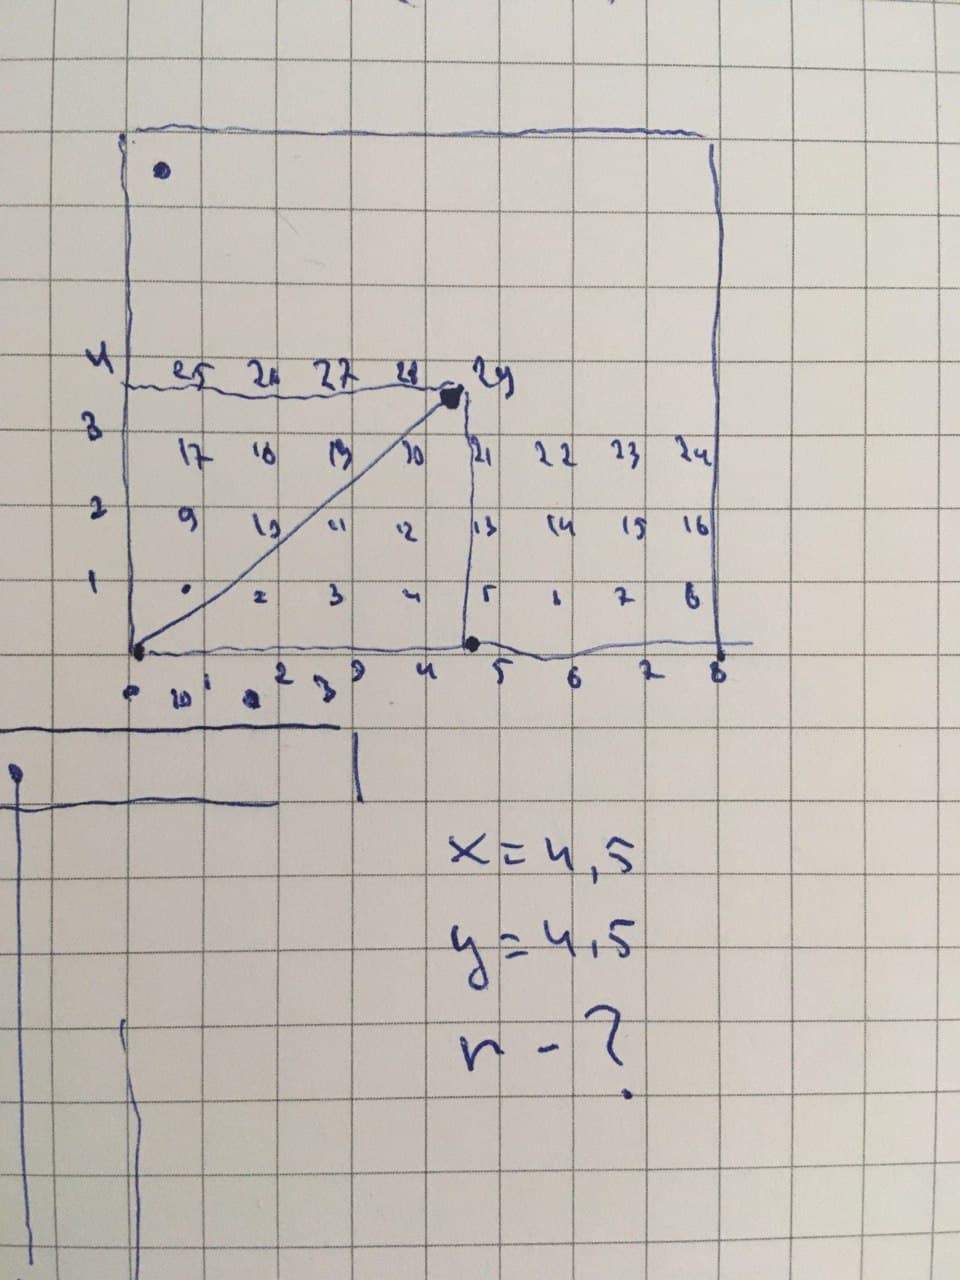 4 25 26 27 28 29
3 17 18 19 20 21 22 23 24
2 9 10 11 12 13 14 15 16
1 2 3 4 5 6 7 8
1 2 3 4 5 6 7 8
10 3
x=4,5
y=4,5
n-?